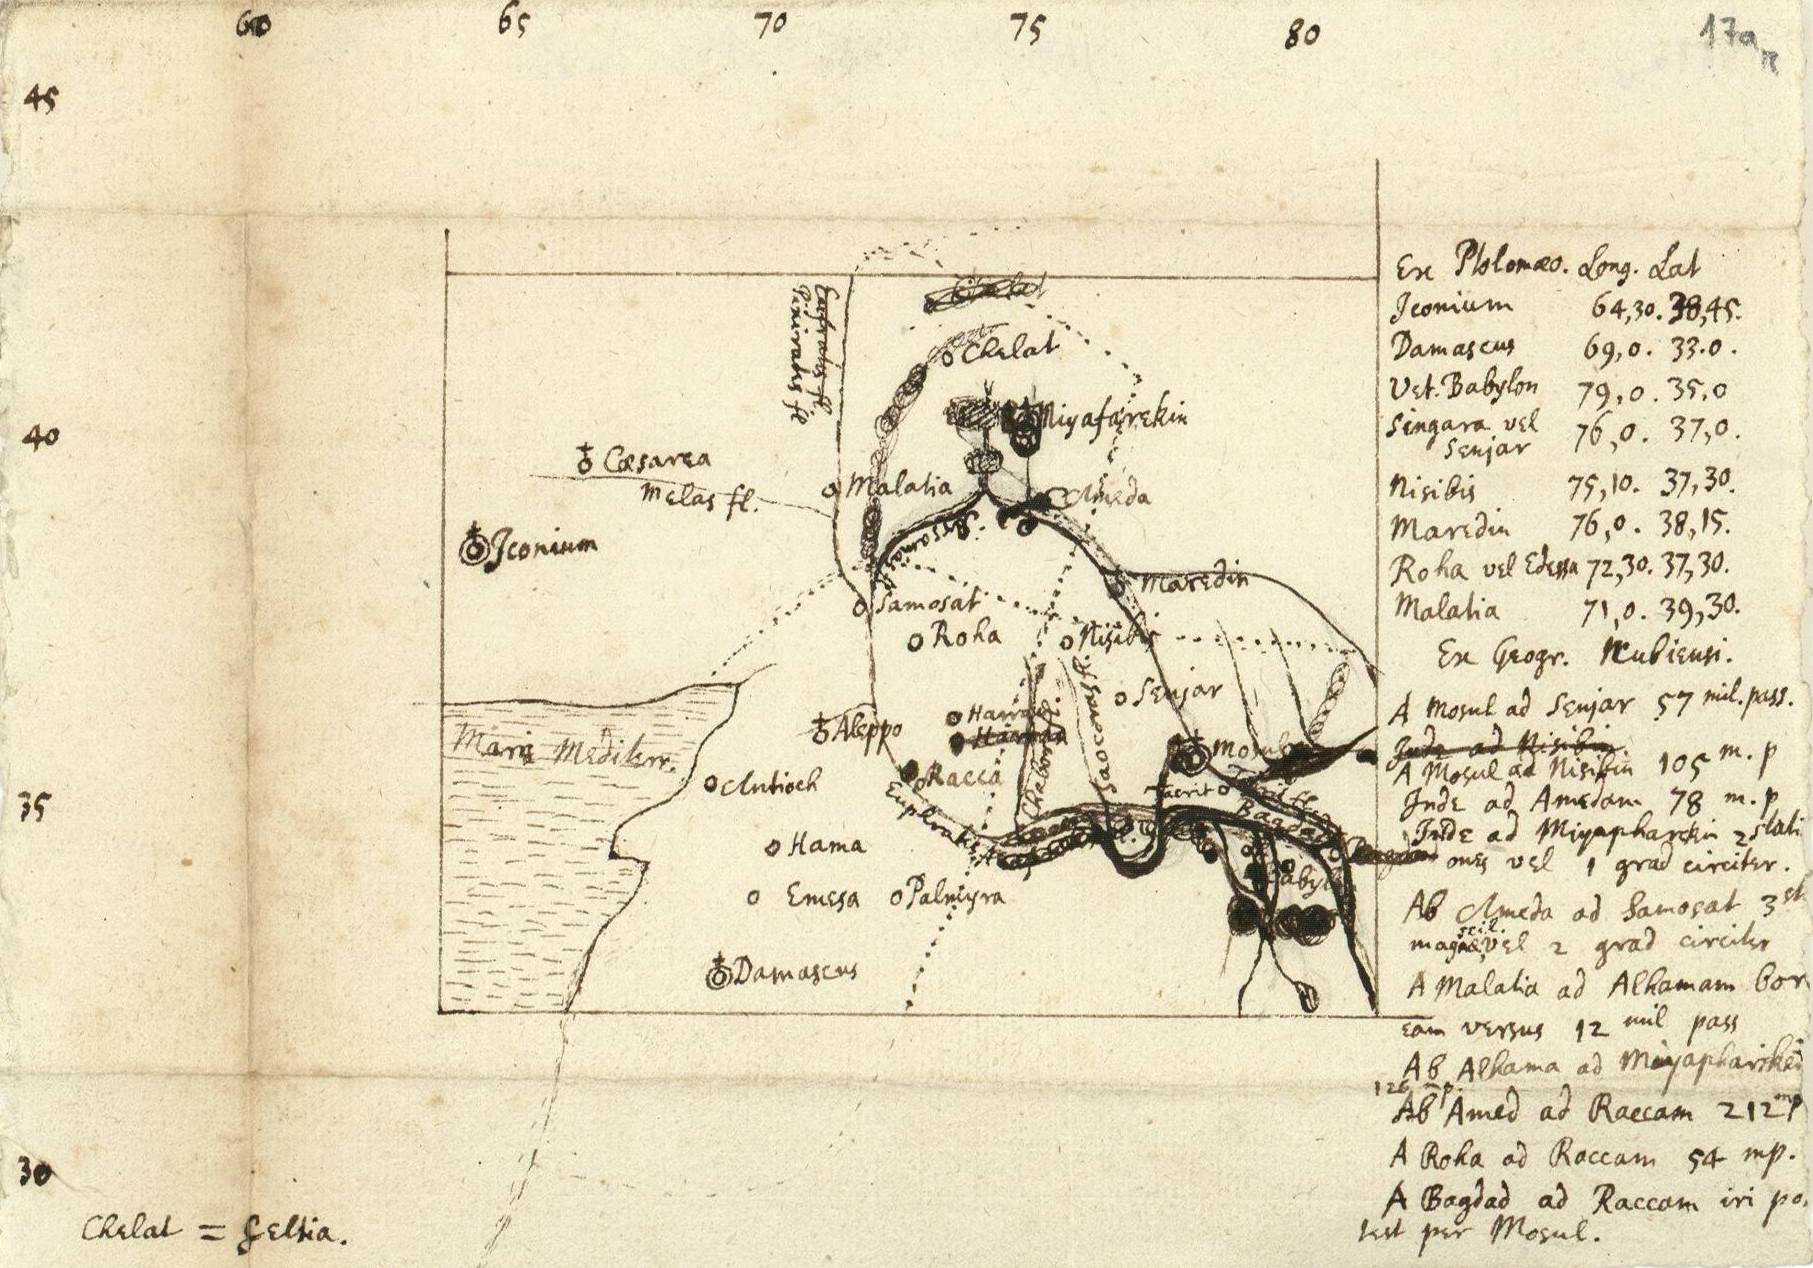 60 65 70 75 80
17a
45
40
35
30
Chelat
Euphratis fl
Chelat
Miyafarekin
Cæsarea
Melas fl.
Malatia
Ameda
Iconium
Arsamas fl.
Maredin
Samosat
Roha
Nisibis
Senjar
Saocoras fl.
Chaboras fl.
Aleppo
Harran
Harran
Mosul
Maris Mediterr.
Antioch
Racca
Euphrates
Tacrit
Bagdad
Hama
Emesa
Palmyra
Babyl
Damascus
Chelat = Celtia.
Ex Ptolomæo. Long. Lat
Iconium 64,30. 38,45.
Damascus 69,0. 33.0.
Vet. Babylon 79,0. 35,0
Singara vel
Senjar 76,0. 37,0.
Nisibis 75,10. 37,30.
Maredin 76,0. 38,15.
Roha vel Edessa 72,30. 37,30.
Malatia 71,0. 39,30.
Ex Geogr. Nubiensi.
A Mosul ad Senjar 57 mil. pass.
Inde ad Nisibin.
A Mosul ad Nisibin 105 m. p
Inde ad Amedam 78 m. p
Inde ad Miyapharekin 2 stati
ones vel 1 grad circiter.
Ab Ameda ad Samosat 3 st
magnæ scil. vel 2 grad circiter
A Malatia ad Alhamam bor
eam versus 12 mil pass
Ab Alhama ad Miyapharekin
126 mp.
Ab Amed ad Raccam 212 mp
A Roha ad Raccam 54 mp.
A Bagdad ad Raccam iri po
test per Mosul.